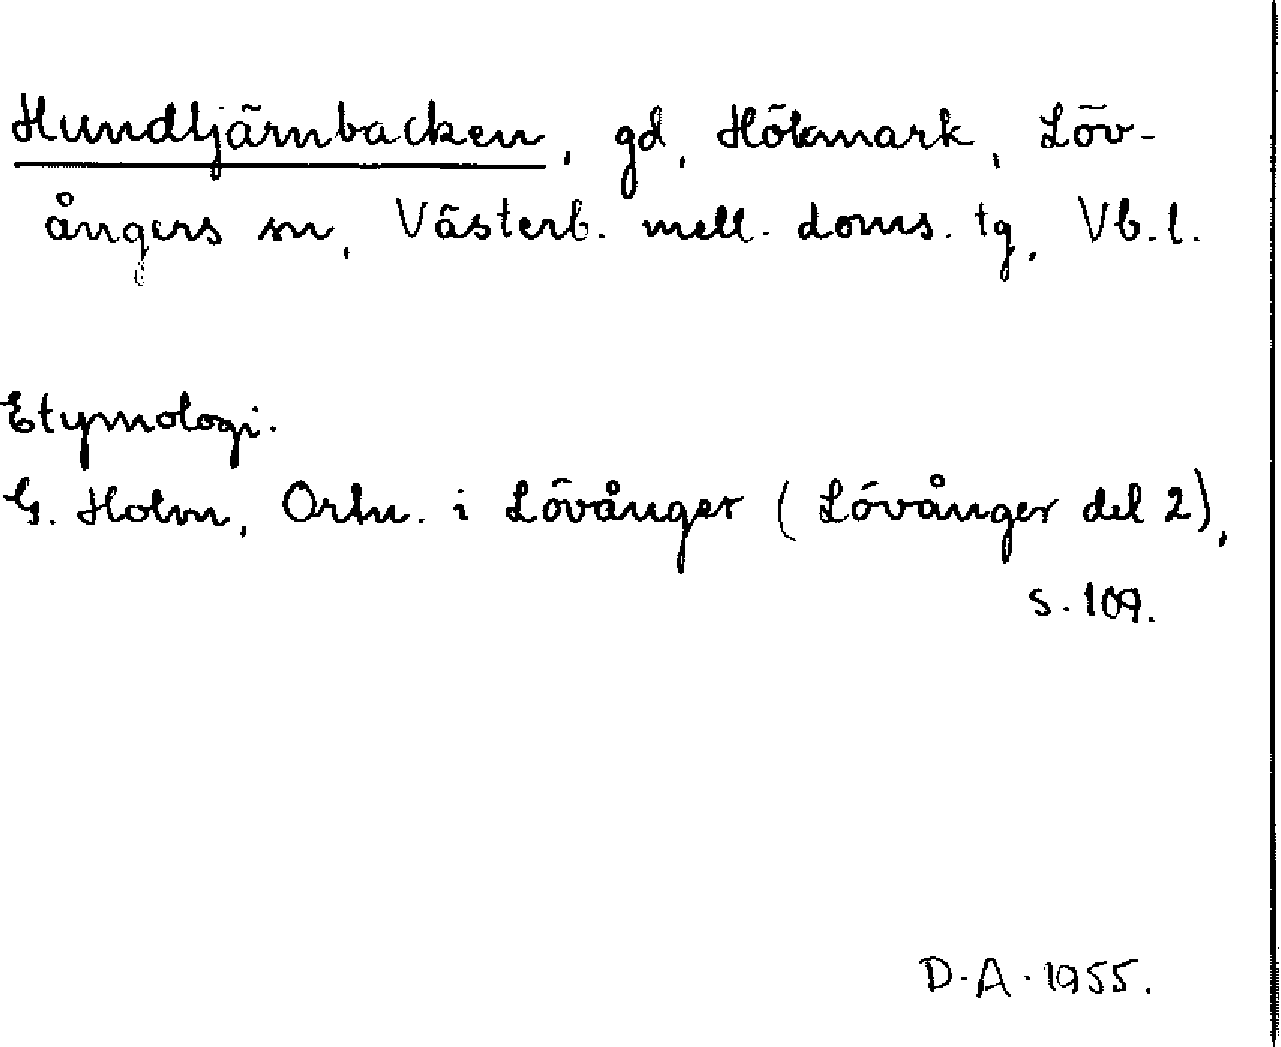 Hundtjärnbacken, gd, Hökmark, Löv-
ångers sn, Västerb. mell. doms. tg, Vb.l.
Etymologi.
G. Holm, Ortn. i Lövånger (Lövånger del 2),
s. 109.
D.A. 1955.